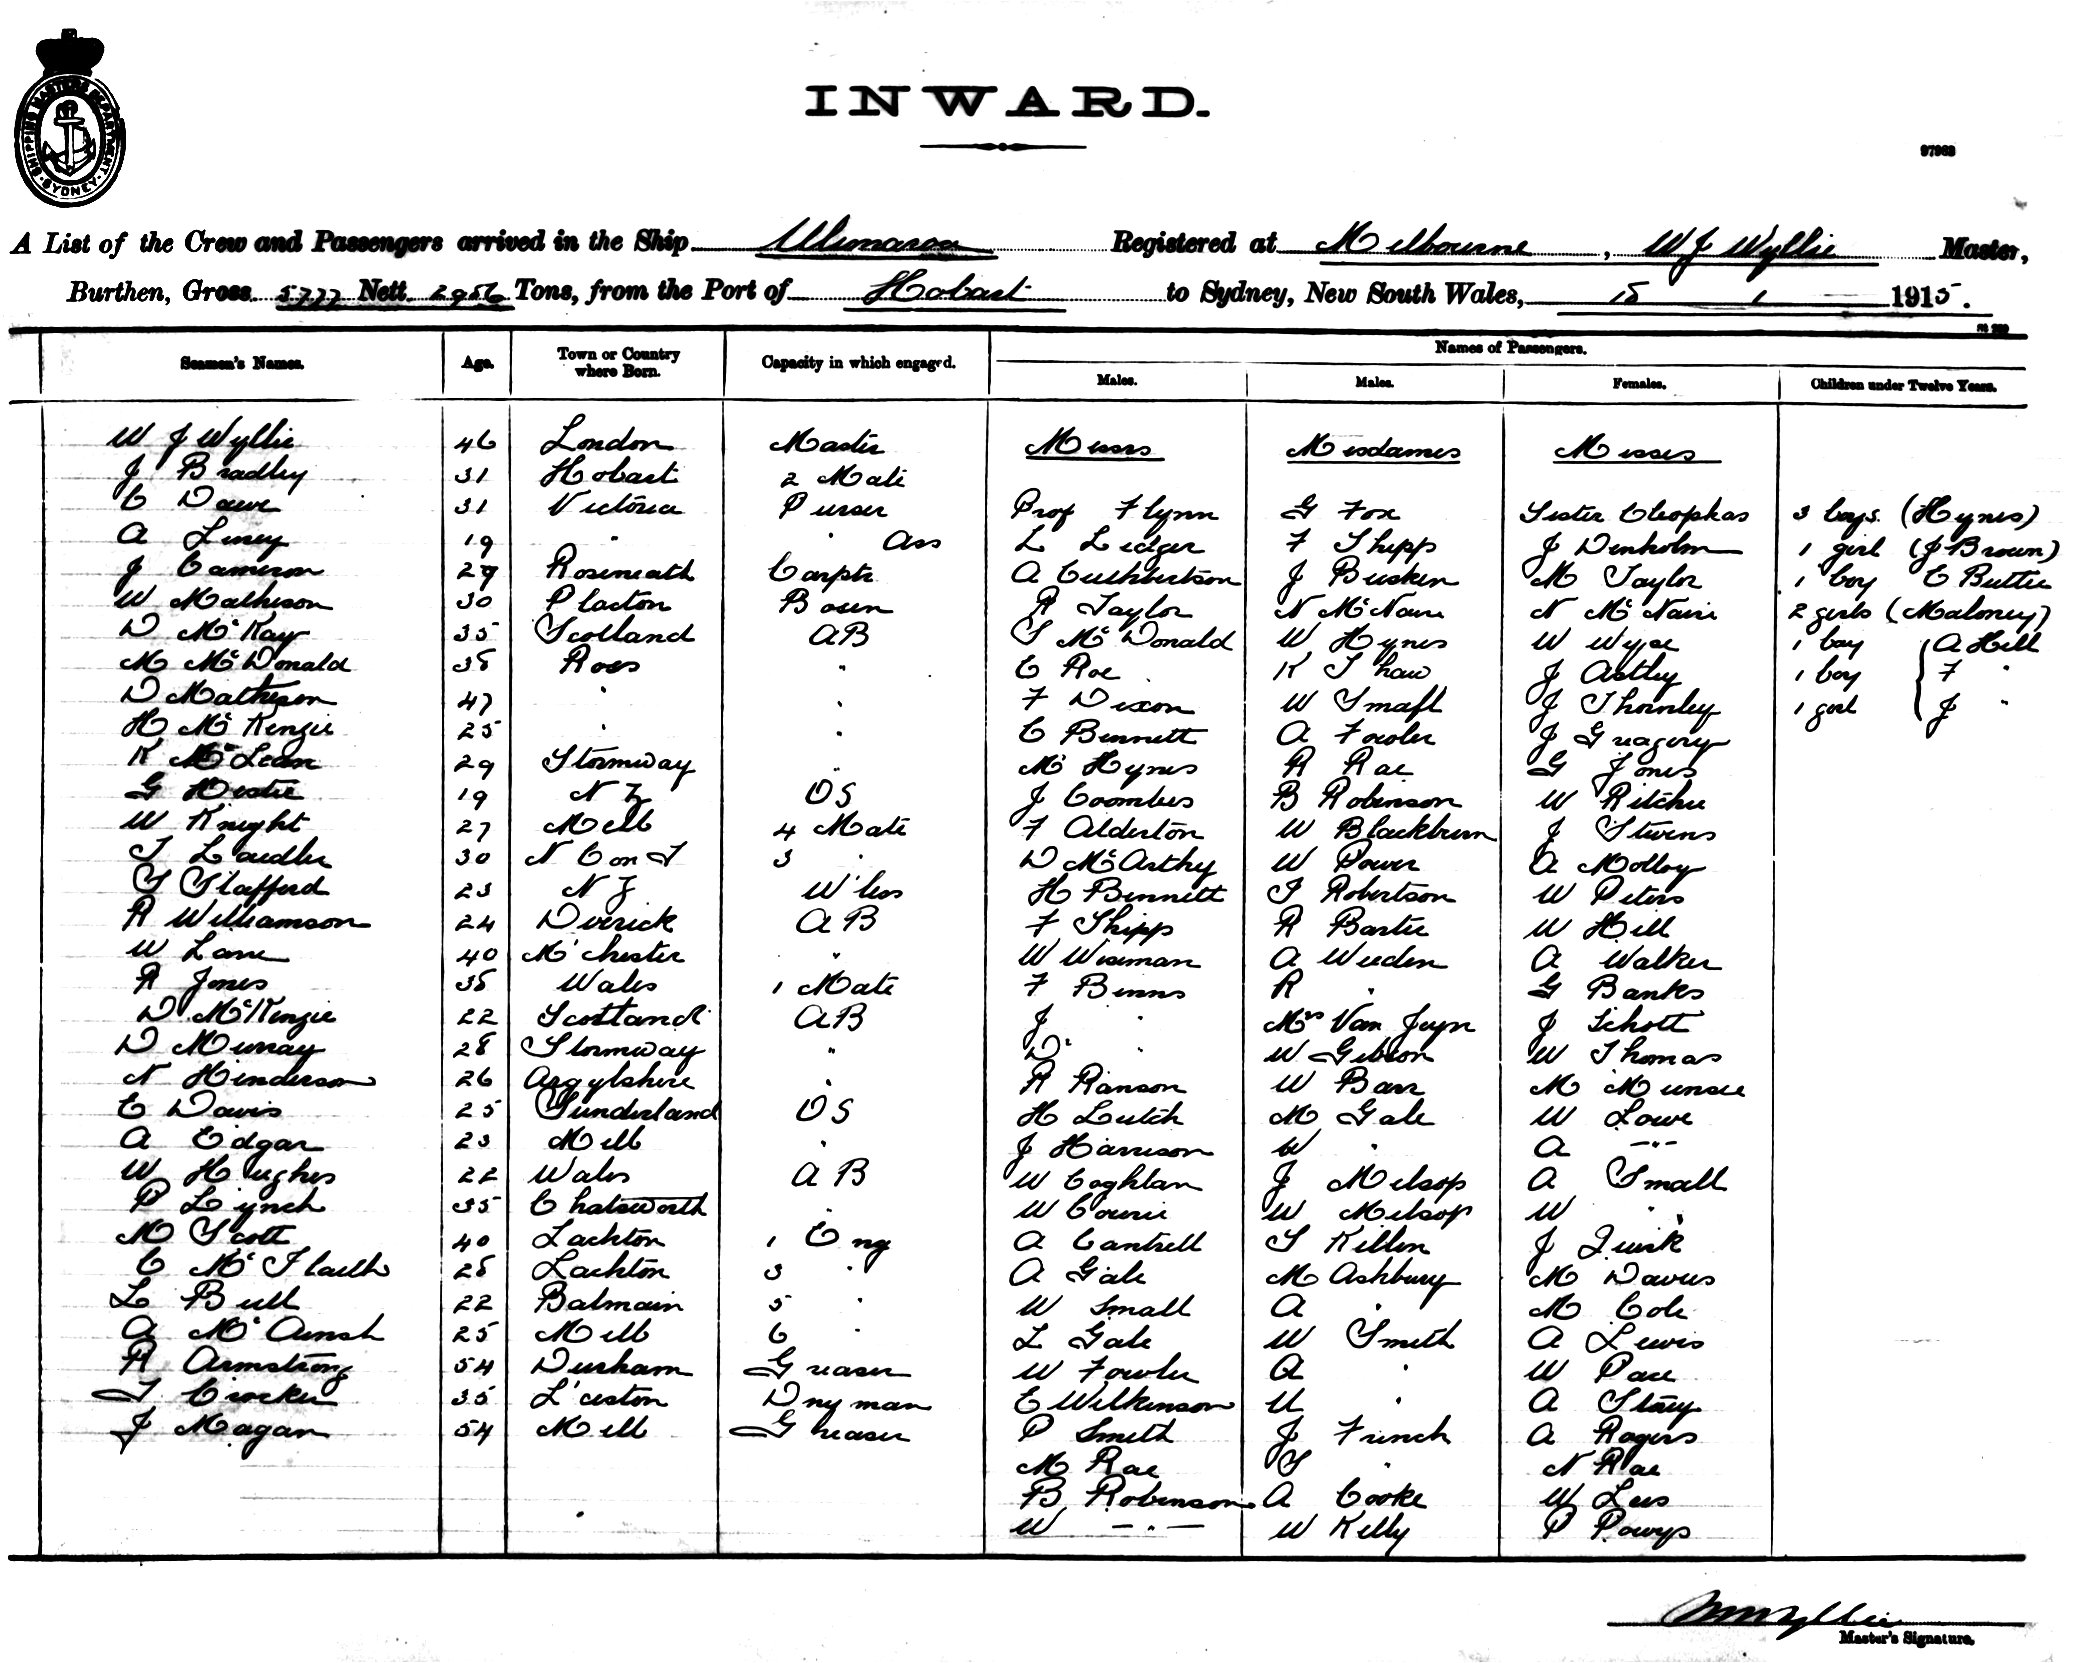 SHIPPING MASTERS DEPARTMENT SYDNEY
INWARD.
97963
A List of the Crew and Passengers arrived in the Ship Ulimaroa Registered at Melbourne, W J Wyllie Master,
Burthen, Gross 5777 Nett 2956 Tons, from the Port of Hobart to Sydney, New South Wales, 1 1915.
Seamen's Names. Age. Town or Country where Born. Capacity in which engaged. Names of Passengers.
Males. Males. Females. Children under Twelve Years.
W J Wyllie 46 London Master Messrs Mesdames Misses
J Bradley 31 Hobart 2 Mate
C Dawe 31 Victoria Purser Prof Flynn G Fox Sister Cleophas 3 boys (Hynes)
A 19 " " Ass L Ledger F Shipp J Denholm 1 girl (J Brown)
J Cameron 29 Roseneath Carptr A Cuthbertson J Busken M Taylor 1 boy C Buttie
W Matheson 30 Plocton Bosun R Taylor N McNair N McNair 2 girls (Maloney)
D McKay 35 Scotland AB S McDonald W Hynes W Wyse 1 boy A Hill
M McDonald 38 Ross " C Roe K Shaw J Astley 1 boy F "
D Matheson 47 " " F Dixon W Small J Thornley 1 girl J "
H McKenzie 25 " " C Bennett A Fowler J Gregory
K McLean 29 Stornway " M Hynes R Rae G Jones
G 19 N Z OS J Coombes B Robinson W Ritchie
W Knight 27 Melb 4 Mate F Alderton W Blackburn J Stevens
T Laidler 30 N C on T 3 " D McArthy W Power A Molloy
S Stafford 23 N Z W'less H Bennett T Robertson W Peters
R Williamson 24 AB F Shipp R Bartie W Hill
W Lane 40 M'chester " W Wiseman A Weeden A Walker
R Jones 38 Wales 1 Mate F Binns R " G Banks
D McKenzie 22 Scotland AB J " Mrs Van J Schott
D Murray 28 Stornway " D " W Gibson W Thomas
N Henderson 26 Argylshire " R Ranson W Barr M Munsie
C Davis 25 Sunderland OS H Leitch M Gale W Lowe
A Edgar 23 Melb " J Harrison W " A "
W Hughes 22 Wales AB W Coghlan J Melsop A Small
P Lynch 35 Chatsworth " W Cowie W Melsop W "
M Scott 40 Lackton 1 Eng A Cantrell S Killen J Quirk
C 28 Lackton 3 " A Gale M Ashbury M Davies
L Bull 22 Balmain 5 " W Small A " M Cole
A McAinsh 25 Melb 6 " L Gale W Smith A Lewis
R Armstrong 54 Durham Greaser W Fowler A " W Pace
T Crocker 35 L'ceston Dnyman E Wilkinson U " A Stacy
J Magan 54 Melb Greaser P Smith J French A Rogers
M Rae S " N Rae
B Robinson A Cooke W Lees
W " W Kelly P Powys
W J Wyllie
Master's Signature.